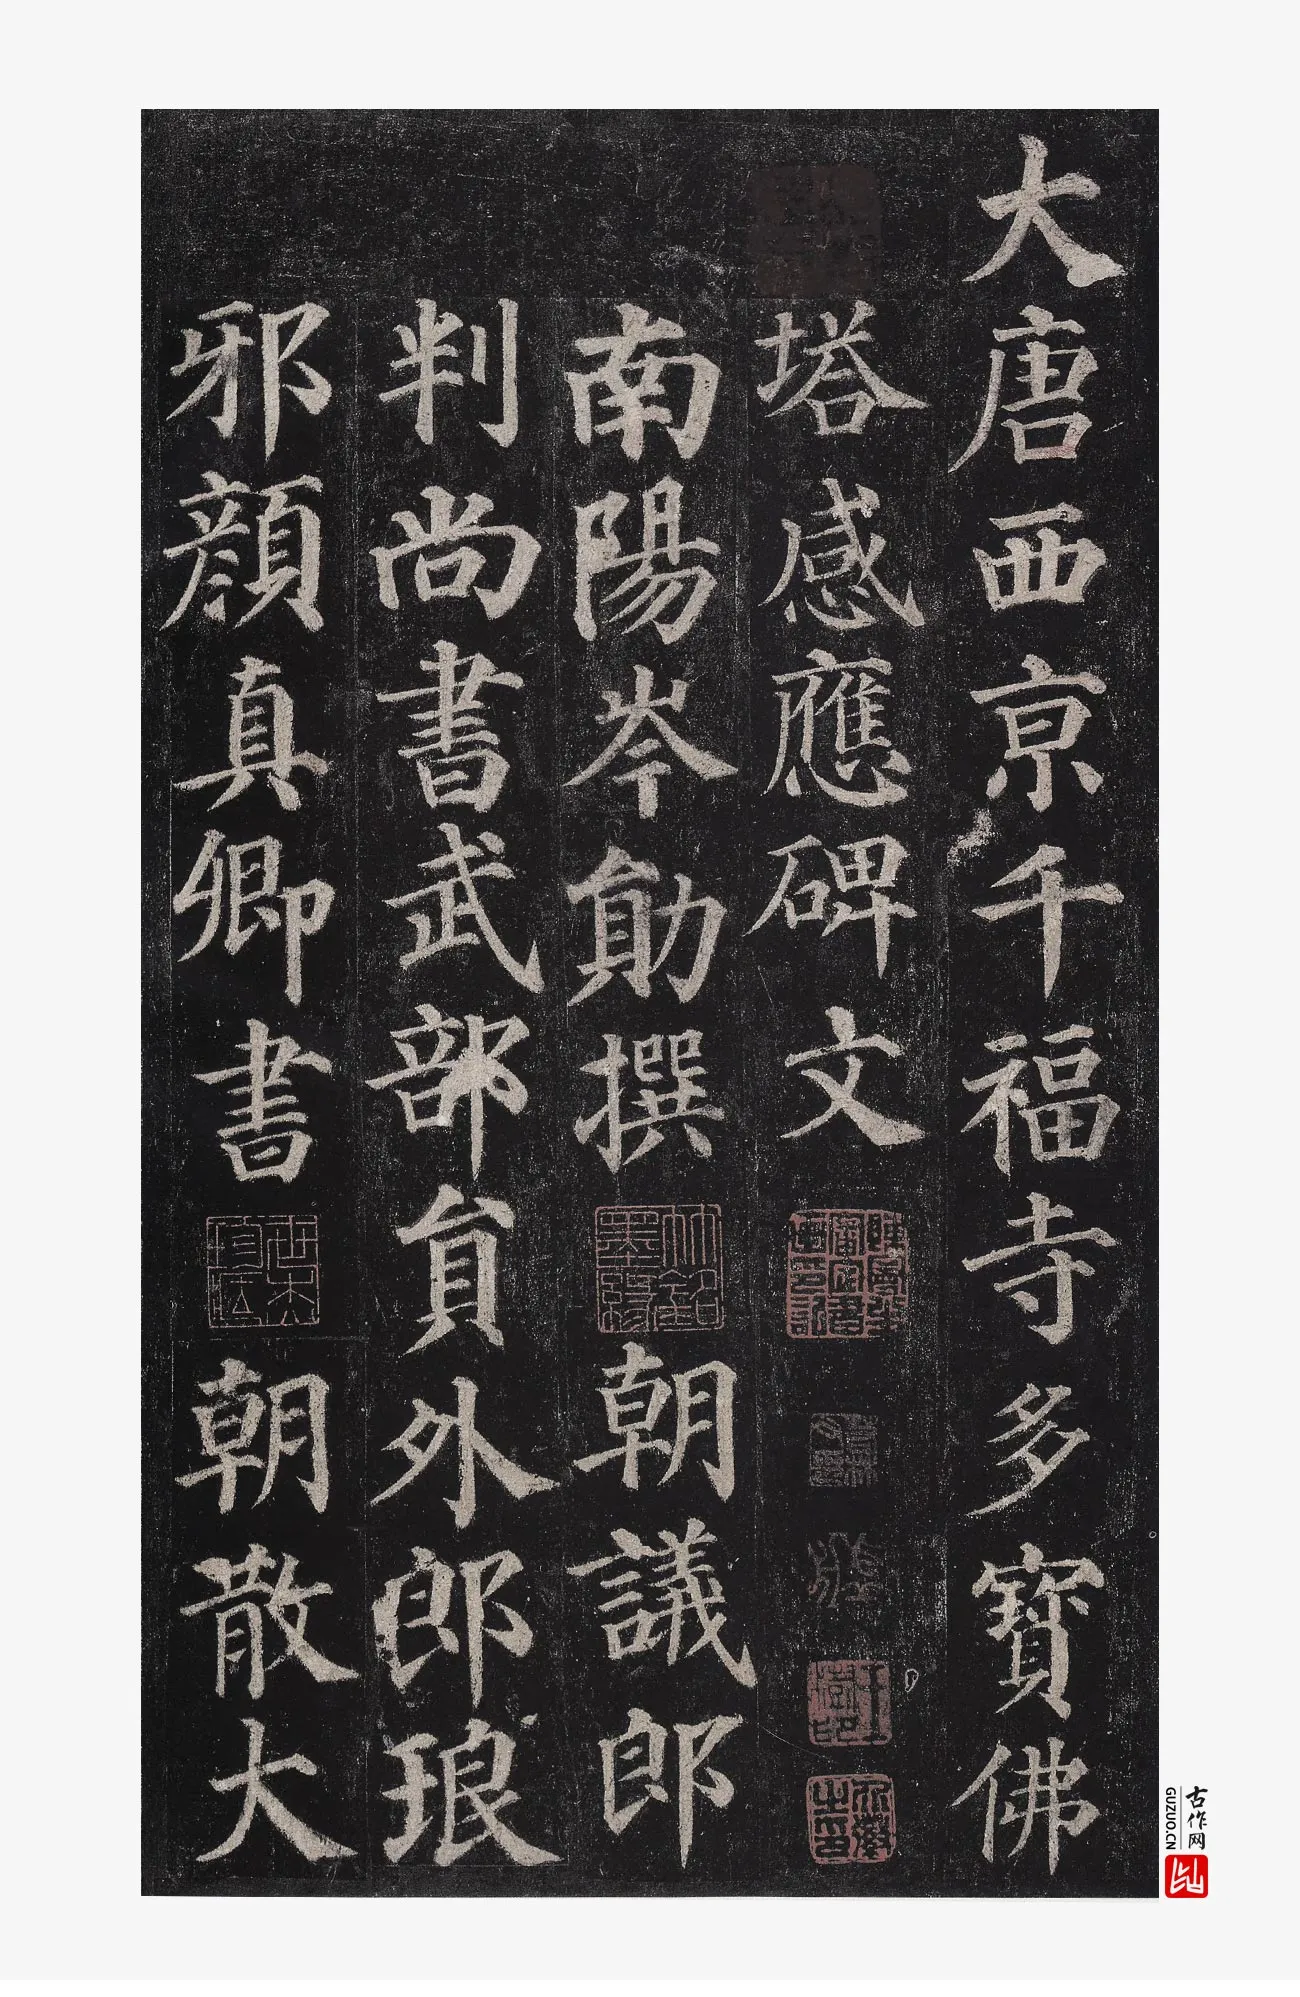 大唐西京千福寺多寶佛
塔感應碑文
南陽岑勛撰 朝議郎
判尚書武部員外郎琅
邪顏真卿書 朝散大
古作网
GUZUO.CN